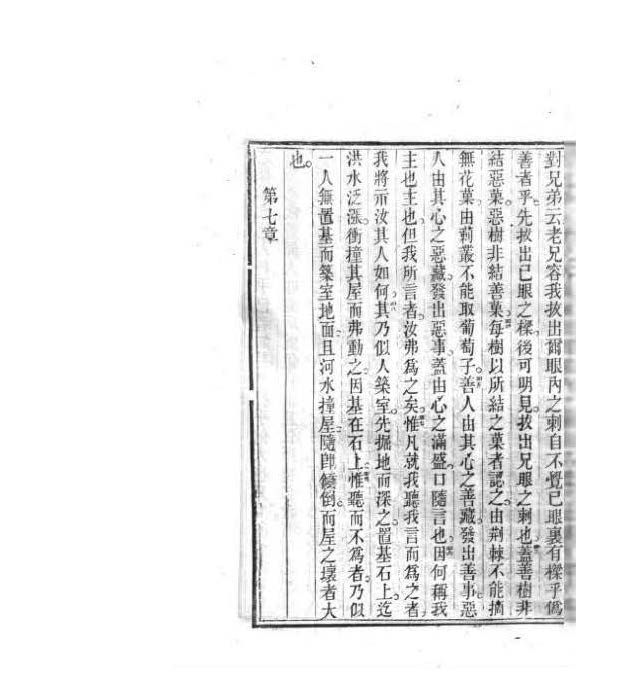 對兄弟云老兄容我拔出爾眼內之刺自不覺己眼裏有樑乎僞
善者乎先拔出己眼之樑後可明見拔出兄眼之刺也蓋善樹非
結惡菓惡樹非結善菓每樹以所結之菓者認之由荆棘不能摘
無花菓由莿叢不能取葡萄子善人由其心之善藏發出善事惡
人由其心之惡藏發出惡事蓋由心之滿盛口隨言也因何稱我
主也主也但我所言者汝弗爲之矣惟凡就我聽我言而爲之者
我將示汝其人如何其乃似人築室先掘地而深之置基石上迄
洪水泛漲衝撞其屋而弗動之因基在石上惟聽而不爲者乃似
一人無置基而築室地面且河水撞屋隨卽傾倒而屋之壞者大
也
第七章